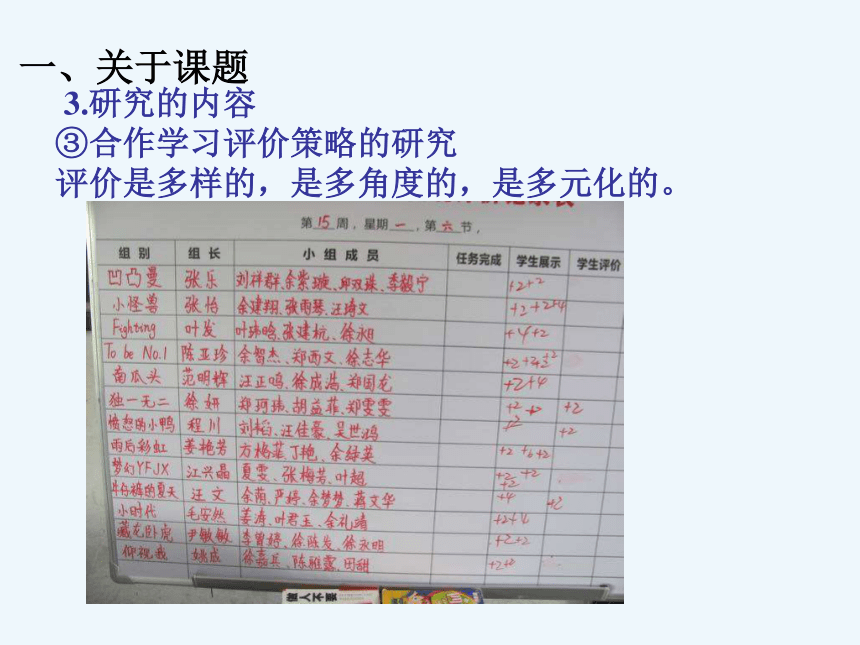 一、关于课题
3.研究的内容
③合作学习评价策略的研究
评价是多样的，是多角度的，是多元化的。
第15周，星期一，第六节，
组别 组长 小组成员 任务完成 学生展示 学生评价
凹凸曼 张乐 刘祥群、余紫璇、邱双瑛、李毅宁 +2+2
小怪兽 张怡 余建翔、张雨琴、汪琦文 +2+2+4
Fighting 叶发 叶玮晗、张建杭、徐昶 +4+2
To be No.1 陈亚珍 余智杰、郑西文、徐志华 +2+4+2
南瓜头 范明辉 汪正鸣、徐成浩、郑国龙 +2+4
独一无二 徐妍 郑珂玮、胡益菲、郑雯雯 +2 +2
愤怒的小鸭 程川 刘韬、汪佳豪、吴世鸿 +2 +2
雨后彩虹 姜艳芳 方梅芷、丁艳、余绿英 +2+6+2
梦幻YFJX 江兴晶 夏雯、张梅芳、叶超 +2+2+2
牛仔裤的夏天 汪文 余荫、严婷、余梦梦、蒋文华 +4 +2
小时代 毛安然 姜涛、叶君玉、余礼靖 +2+4
藏龙卧虎 尹敏敏 李曾婷、徐陈发、徐永明 +2+2
仰视我 成 徐嘉兵、陈雅露、田甜
做人不要